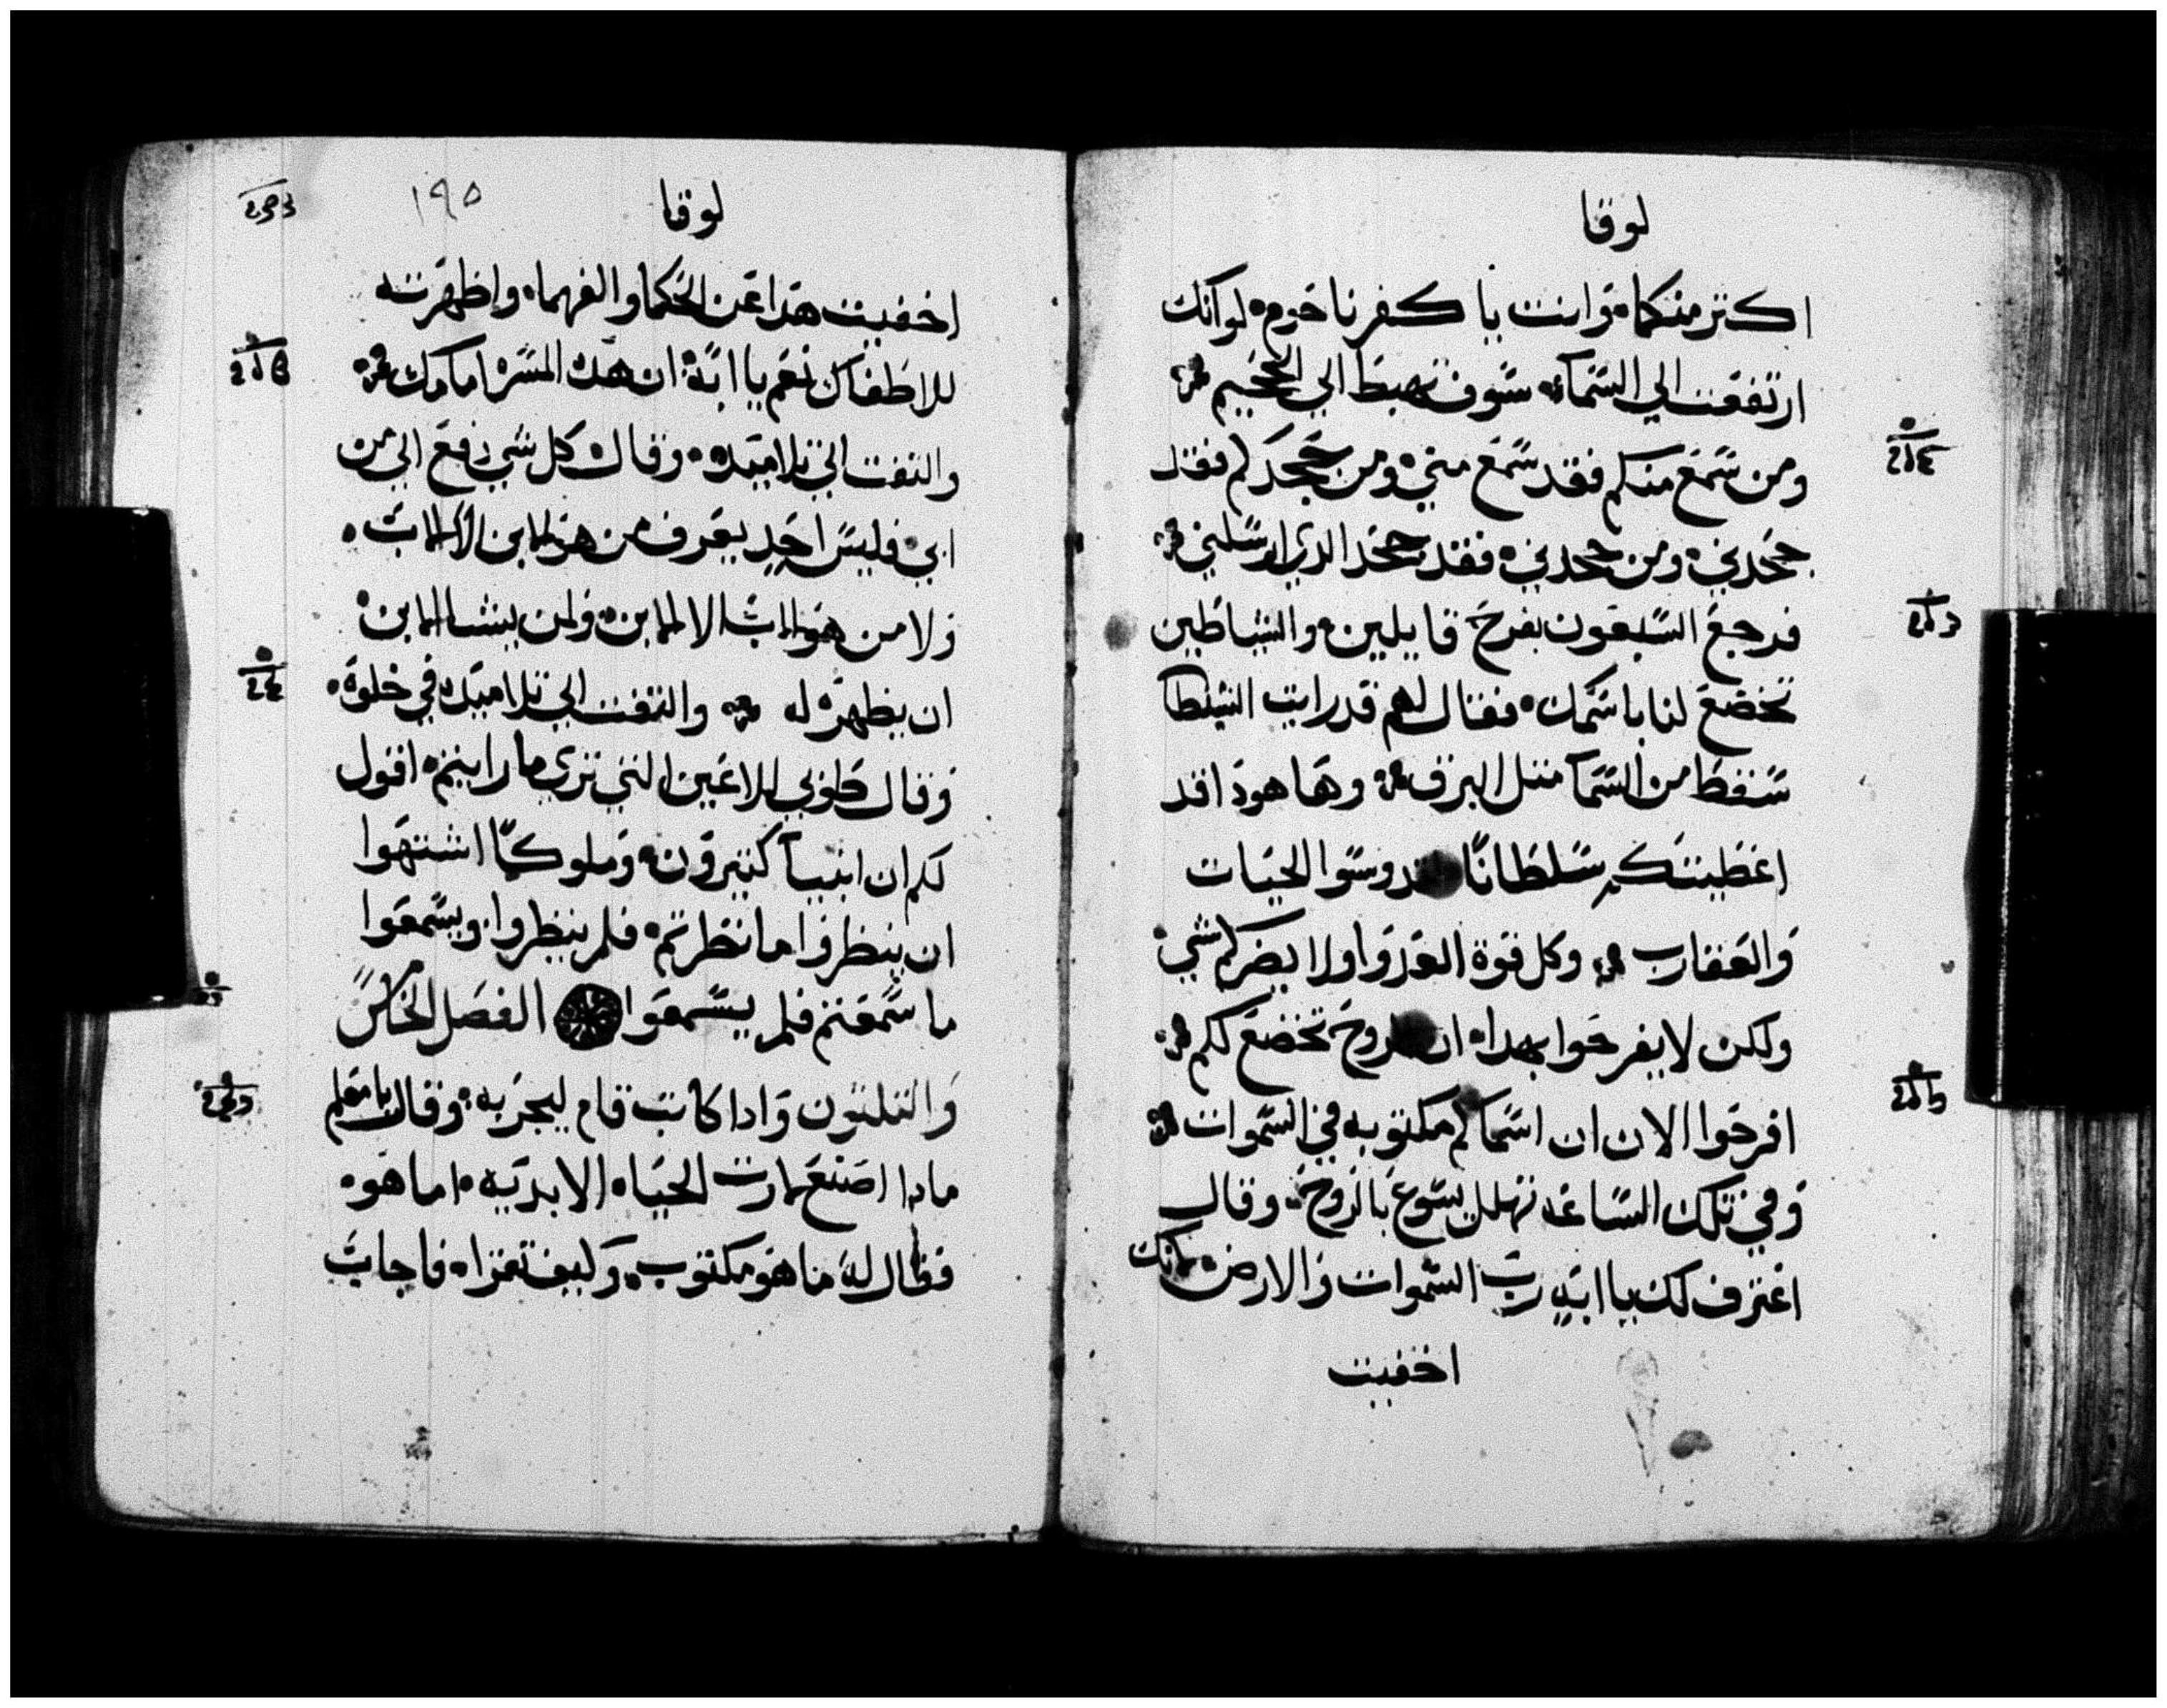 لوقا
اكتر منكما وانت يا كفرنا حوم لو انك
ارتفعت الي السماء سوف تهبط الي الجحيم
ومن سمع منكم فقد سمع مني ومن جحدكم فقد
جحدني ومن جحدني فقد جحد الدي ارسلني
فرجع السبعون بفرح قايلين والشياطين
تخضع لنا باسمك فقال لهم قد رايت الشيطا
سقط من السما متل البرق وها هودا قد
اعطيتكم سلطانا لتدوسوا الحيات
والعقارب وكل قوة العدو ولا يضركم شي
ولكن لا يفرحوا بهدا ان الروح تخضع لكم
افرحوا الان ان اسماكم مكتوبه في السموات
وفي تلك الساعه تهلل يسوع بالروح وقال
اعترف لك يا ابه رب السموات والارض لانك
اخفيت
لوقا
١٩٥
اخفيت هدا عن الحكما والفهما واظهرته
للاطفال نعم يا ابة ان هده المسره امامك
والتفت الي تلاميده وقال كل شي دفع الي من
ابي فليس احد يعرف من هو الابن الا الاب
ولا من هو الاب الا الابن ولمن يشا الابن
ان يظهره له والتفت الي تلاميده في خلوة
وقال طوبي للاعين التي تري ما رايتم اقول
لكم ان انبيا كتيرون وملوكا اشتهوا
ان ينظروا ما نظرتم فلم ينظروا ويسمعوا
ما سمعتم فلم يسمعوا الفصل الخامس
والتلتون وادا كاتب قام ليجربه وقال يا معلم
مادا اصنع لارت الحياه الابديه اما هو
فقال له ما هو مكتوب وكيف تقرا فاجاب